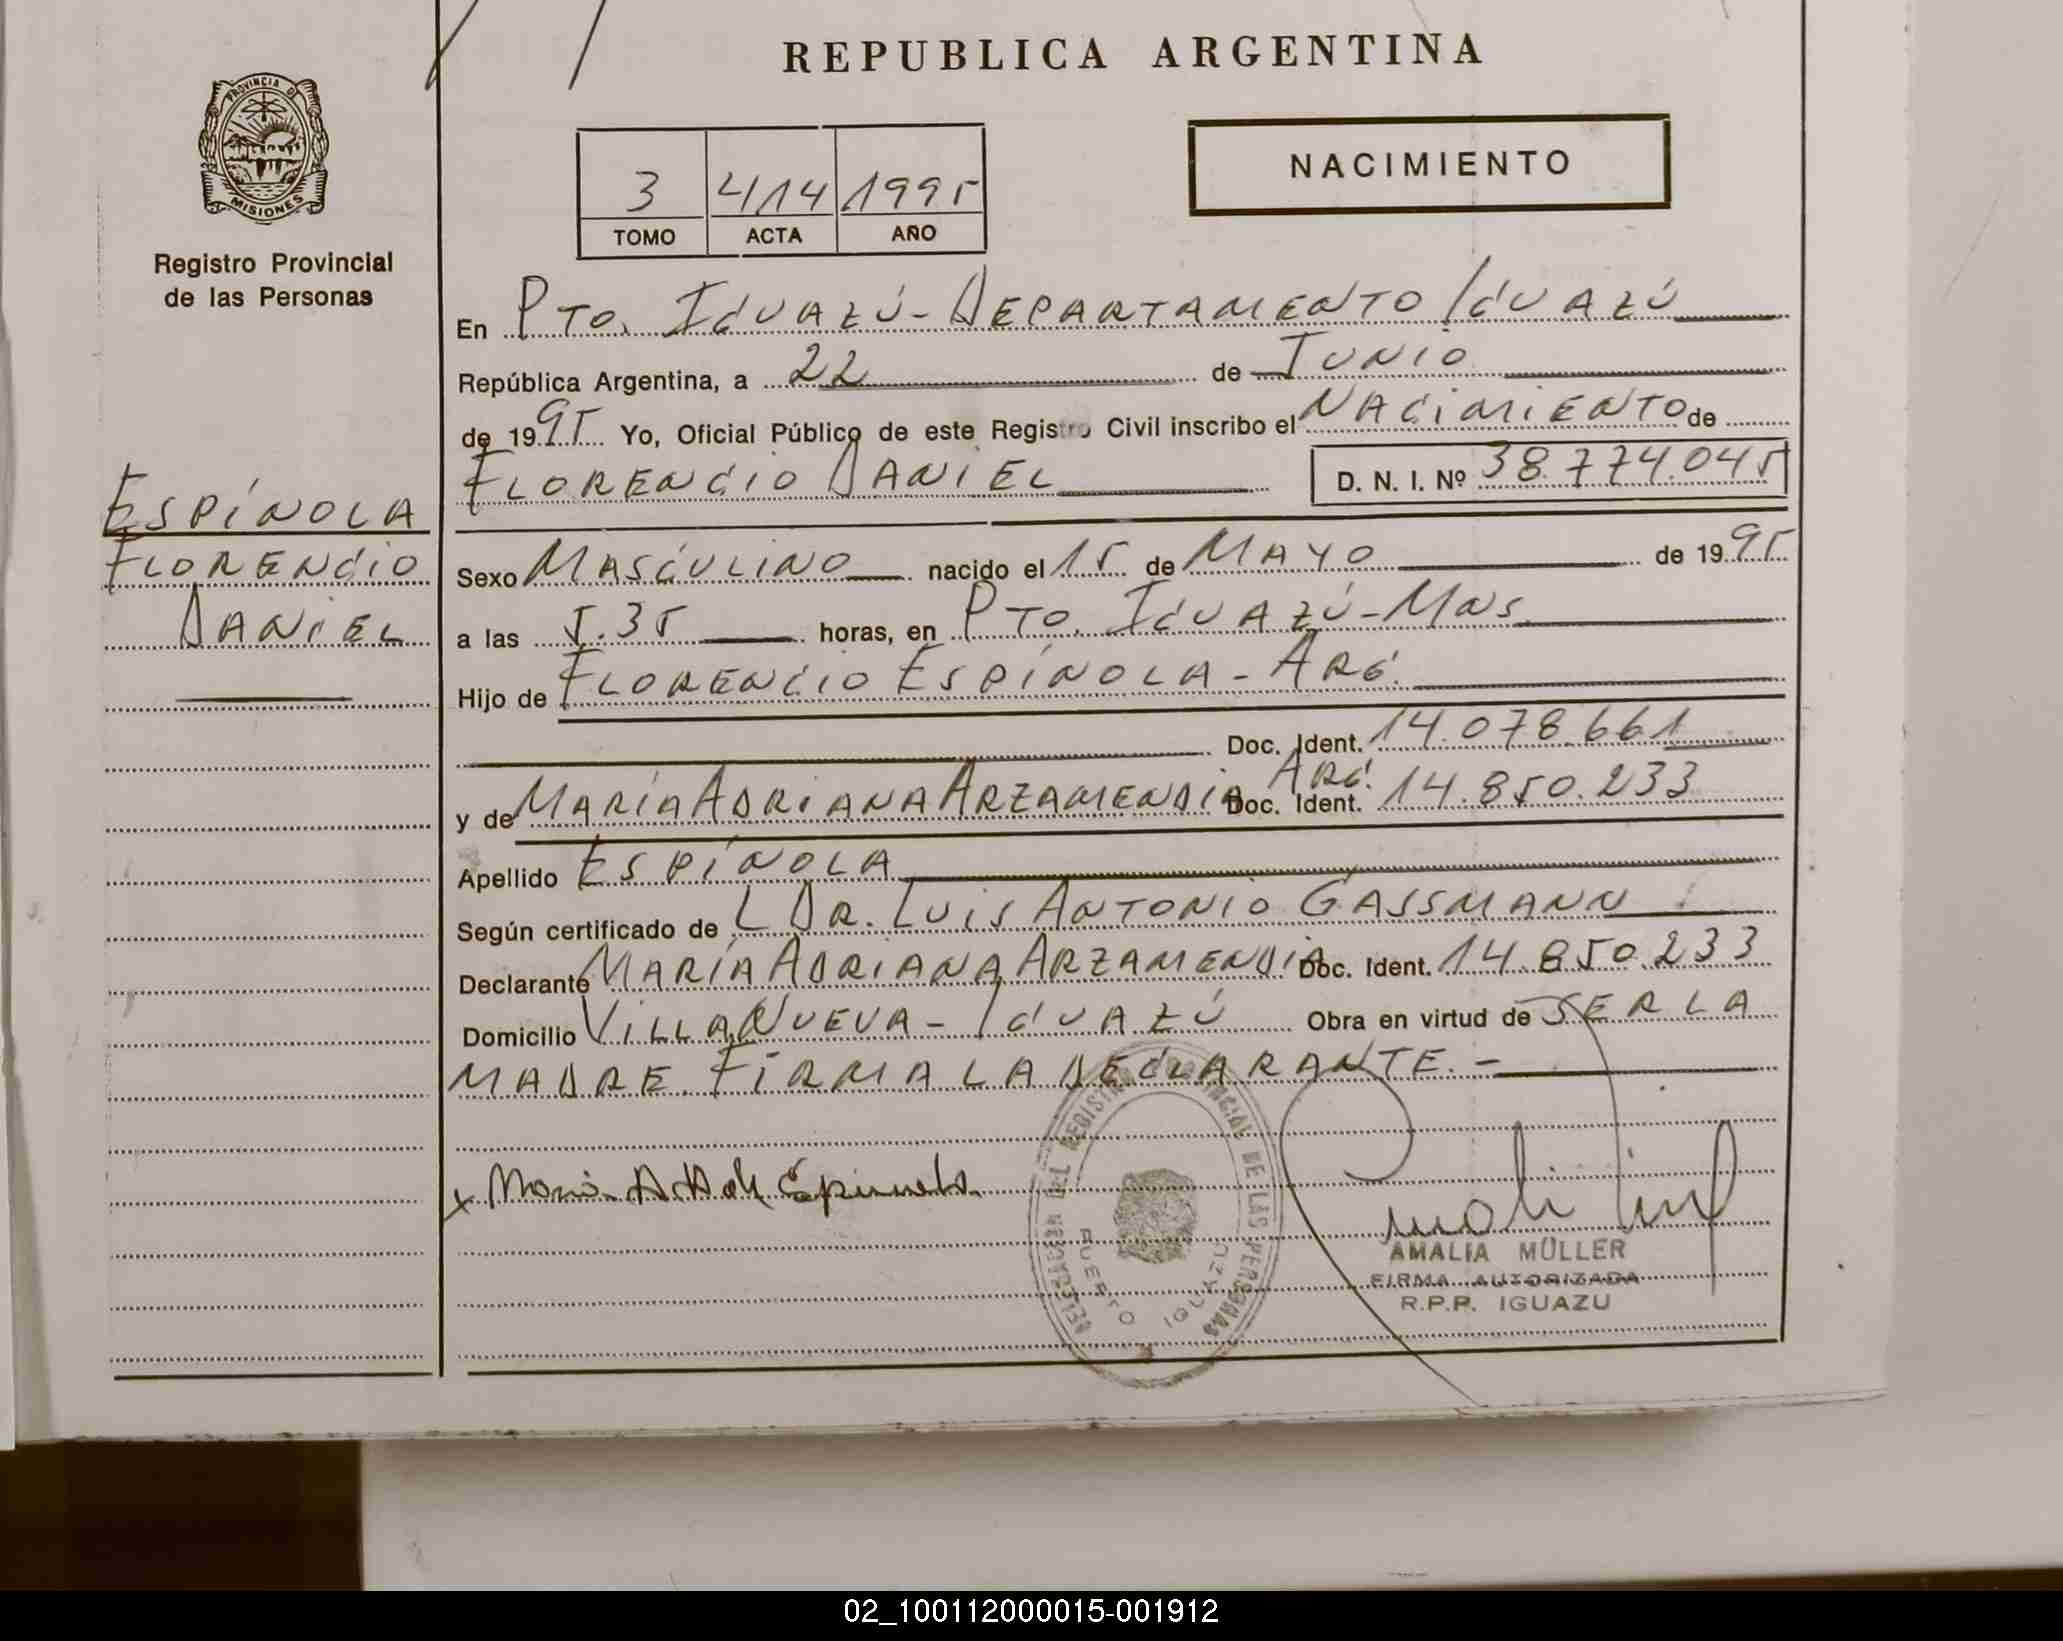 REPUBLICA ARGENTINA
PROVINCIA DE
MISIONES
Registro Provincial
de las Personas
NACIMIENTO
3 414 1995
TOMO ACTA AÑO
En PTO. IGUAZÚ - DEPARTAMENTO IGUAZÚ
República Argentina, a 22 de JUNIO
de 1995 Yo, Oficial Público de este Registro Civil inscribo el NACIMIENTO de
FLORENCIO DANIEL D. N. I. Nº 38.774.045
ESPÍNOLA
FLORENCIO
DANIEL
Sexo MASCULINO nacido el 15 de MAYO de 1995
a las 5.35 horas, en PTO. IGUAZÚ - MNS.
Hijo de FLORENCIO ESPÍNOLA - ARG.
Doc. Ident. 14.078.661
y de MARÍA ADRIANA ARZAMENDIA ARG. Doc. Ident. 14.850.233
Apellido ESPÍNOLA
Según certificado de L DR. LUIS ANTONIO GASSMANN
Declarante MARÍA ADRIANA ARZAMENDIA Doc. Ident. 14.850.233
Domicilio VILLA NUEVA - IGUAZÚ Obra en virtud de SER LA
MADRE. FIRMA LA DECLARANTE. -
DELEGACION DEL REGISTRO PROVINCIAL DE LAS PERSONAS
PUERTO IGUAZU
AMALIA MÜLLER
FIRMA AUTORIZADA
R.P.P. IGUAZU
02_100112000015-001912